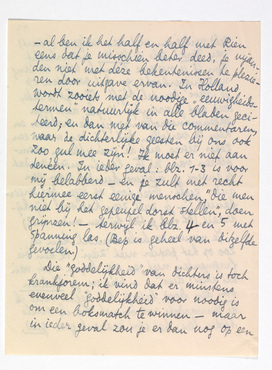 – al ben ik het half en half met Rien
eens dat je misschien beter deed, je vijan-
den niet met deze bekentenissen te plezie-
ren door uitgave ervan. In Holland
wordt zooiets met de noodige "eeuwigheids-
termen" natuurlijk in alle bladen geci-
teerd, en dan met van die commentaren,
waar de dichterlijke geesten bij ons ook
zoo gul mee zijn! Ik moet er niet aan
denken. In ieder geval: blz. 1-3 is voor
mij belabberd – en je zult met recht
hiermee eerst eenige menschen, "die men
niet bij het gepeupel dorst stellen", doen
grijnzen! – terwijl ik blz. 4 en 5 met
spanning las. (Bep is geheel van dezelfde
gevoelen.)
Die "goddelijkheid" van dichters is toch
krankjorem; ik vind dat er minstens
evenveel "goddelijkheid" voor noodig is
om een boksmatch te winnen – maar
in ieder geval zou je er dan nog op een